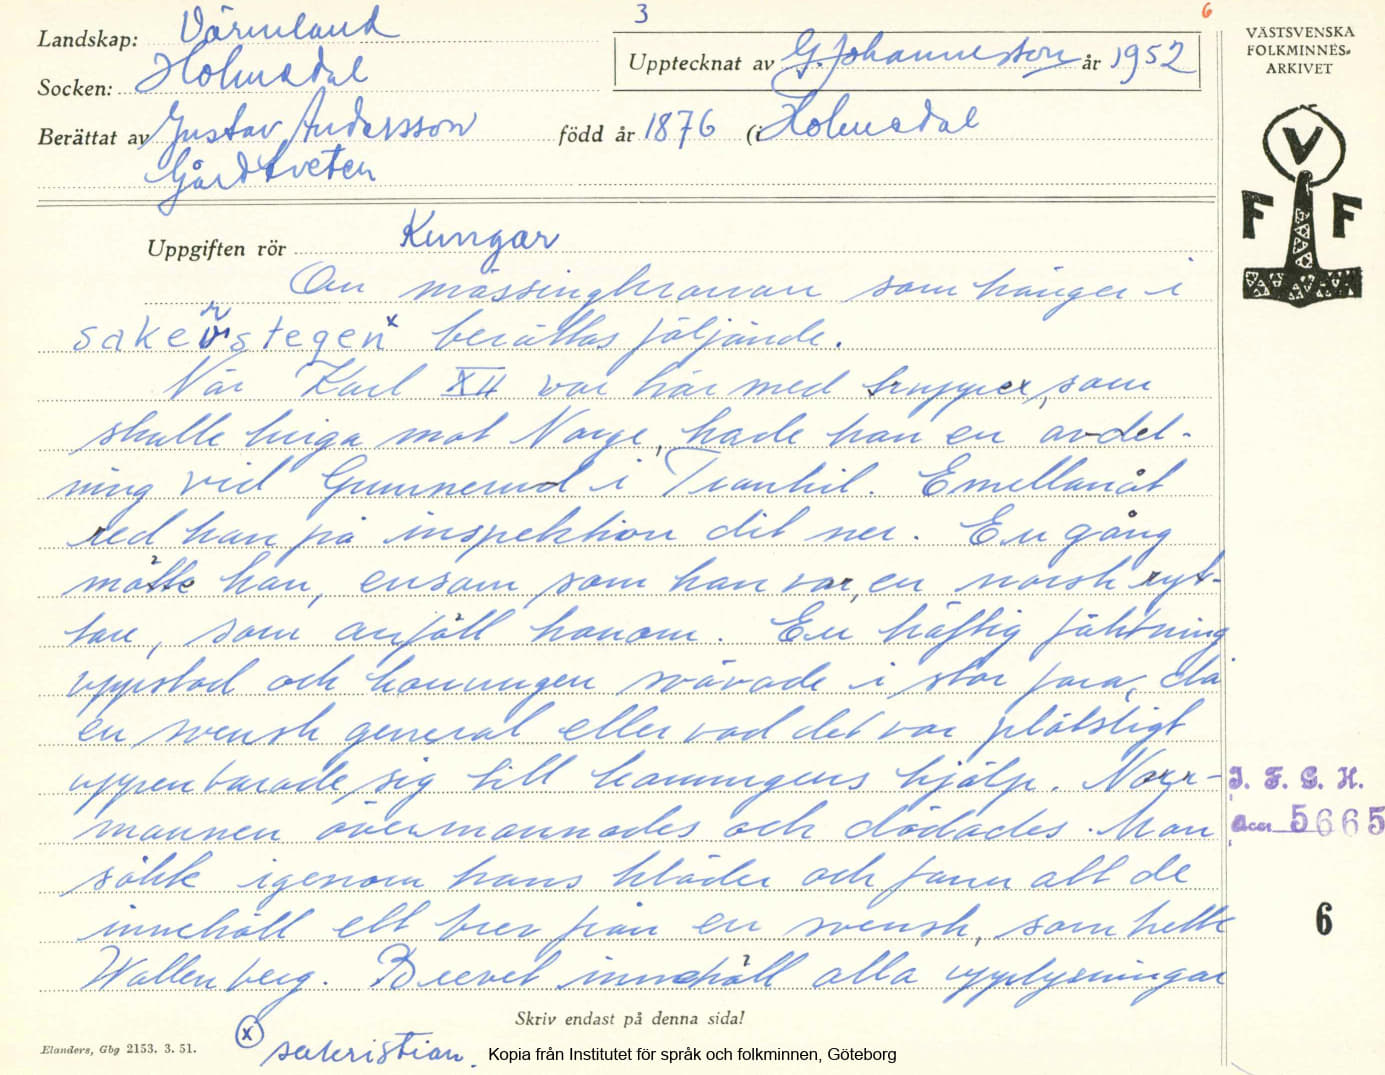 3
6
Landskap: Värmland
Socken: Holmedal
Upptecknat av G. Johannesson år 1952
Berättat av Gustav Andersson född år 1876 (i Holmedal
Gårdtveten
Uppgiften rör Kungar
Om mässingkronan som hänger i
sakerstegen x berättas följande.
När Karl XII var här med trupper, som
skulle kriga mot Norge, hade han en avdel-
ning vid Gunnerud i Trankil. Emellanåt
red han på inspektion dit ner. En gång
mötte han, ensam som han var, en norsk ryt-
tare, som anföll honom. En häftig fäktning
uppstod och konungen svävade i stor fara, då
en svensk general eller vad det var plötsligt
uppenbarade sig till konungens hjälp. Norr-
mannen övermannades och dödades. Man
sökte igenom hans kläder och fann att de
innehöll ett brev från en svensk, som hette
Wallenberg. Brevet innehöll alla upplysningar
Skriv endast på denna sida!
x sakristian.
Elanders, Gbg 2153. 3. 51.
Kopia från Institutet för språk och folkminnen, Göteborg
VÄSTSVENSKA
FOLKMINNES-
ARKIVET
V
F F
I. F. G. H.
Acc. 5665
6